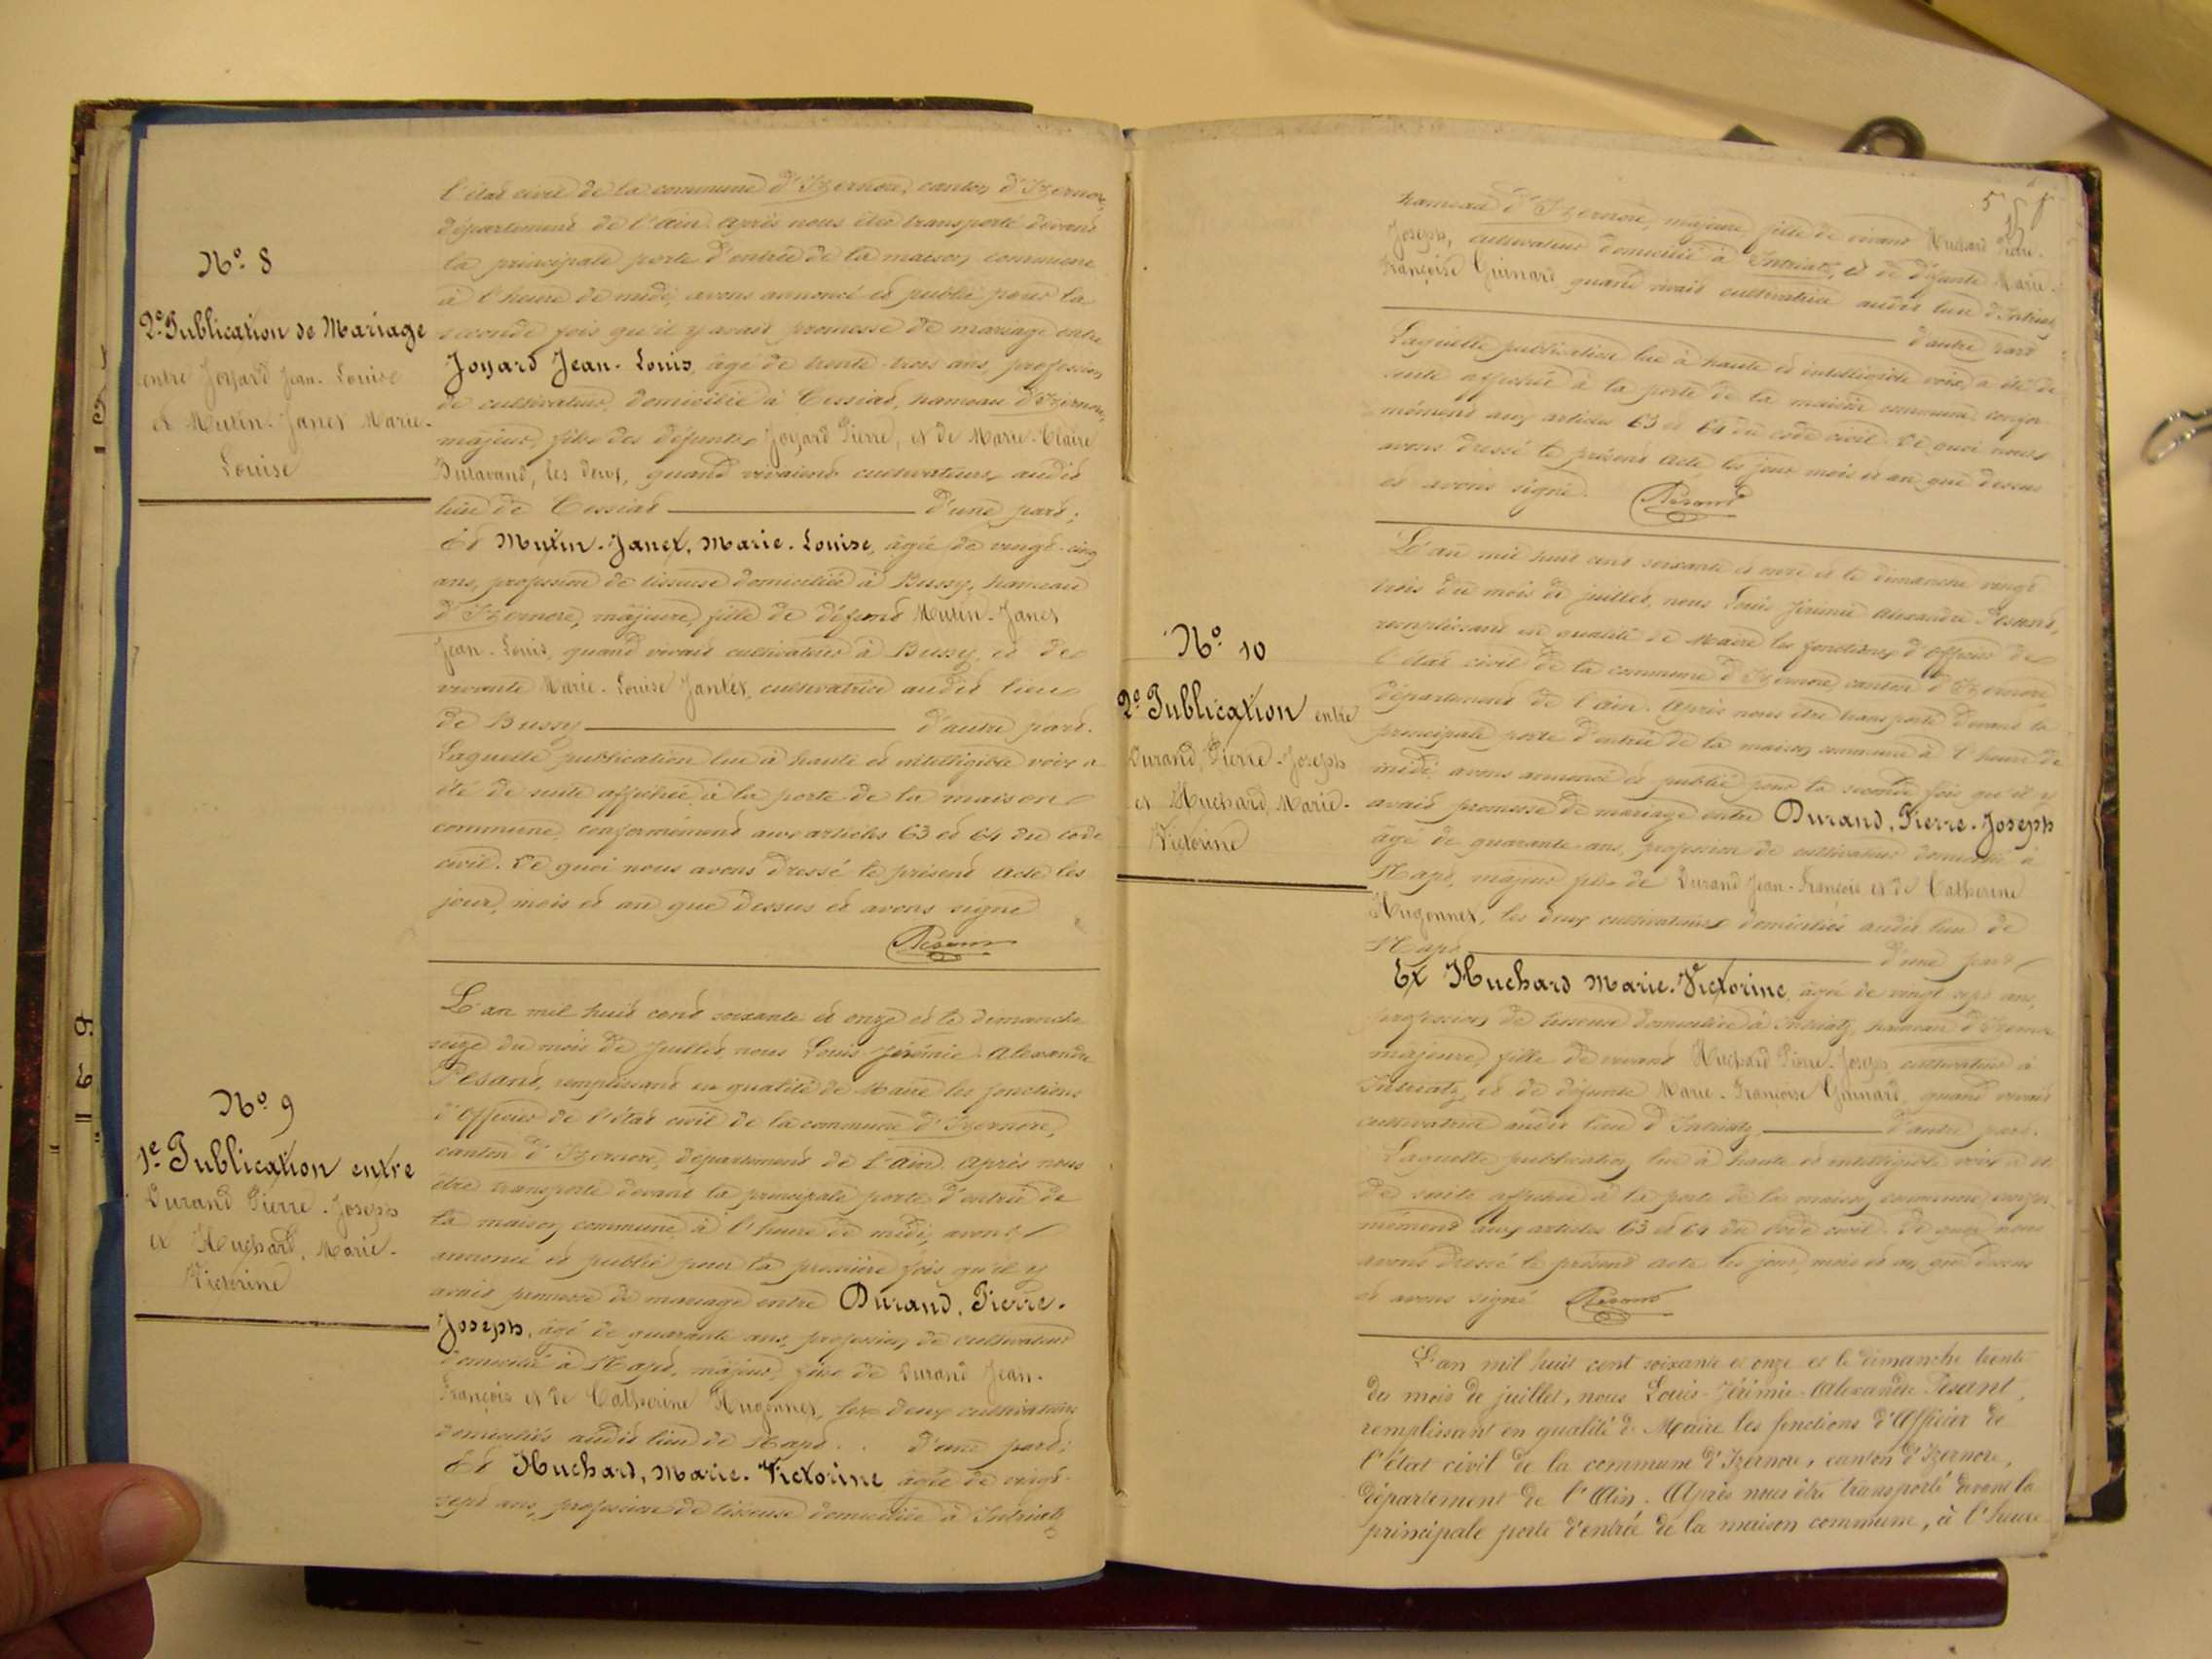 l'état civil de la commune d'Izernore, canton d'Izernore,
département de l'ain. Après nous être transporté devant
la principale porte d'entrée de la maison commune
à l'heure de midi, avons annoncé et publié pour la
seconde fois qu'il y avait promesse de mariage entre
Joyard Jean-Louis, âgé de trente-trois ans, profession
de cultivateur, domicilié à Cessiat, hameau d'Izernore,
majeur, fils des défunts Joyard Pierre, et de Marie-Claire
les deux, quand vivaient cultivateurs audit
lieu de Cessiat d'une part;
Et Mutin-Janet, Marie-Louise, âgée de vingt-cinq
ans, profession de tisseuse domiciliée à Bussy, hameau
d'Izernore, majeure, fille de défunt Mutin-Janet
Jean-Louis, quand vivait cultivateur à Bussy, et de
vivante Marie-Louise Jantet, cultivatrice audit lieu
de Bussy d'autre part.
Laquelle publication lue à haute et intelligible voix a
été de suite affichée à la porte de la maison
commune, conformément aux articles 63 et 64 du code
civil. De quoi nous avons dressé le présent acte les
jour, mois et an que dessus et avons signé
Pesant
N° 8
2e Publication de Mariage
entre Joyard Jean-Louis
et Mutin-Janet Marie-
Louise
L'an mil huit cent soixante et onze et le dimanche
seize du mois de juillet, nous Louis-Jérémie-Alexandre
Pesant, remplissant en qualité de Maire les fonctions
d'Officier de l'état civil de la commune d'Izernore,
canton d'Izernore, département de l'ain. Après nous
être transporté devant la principale porte d'entrée de
la maison commune à l'heure de midi, avons
annoncé et publié pour la première fois qu'il y
avait promesse de mariage entre Durand, Pierre-
Joseph, âgé de quarante ans, profession de cultivateur
domicilié à Napt, majeur, fils de Durand Jean-
François et de Catherine Hugonnet, les deux cultivateurs
domiciliés audit lieu de Napt . . d'une part;
Et Huchard, Marie-Victorine âgée de vingt-
sept ans, profession de tisseuse domiciliée à Intriatz
N° 9
1e Publication entre
Durand Pierre-Joseph
et Huchard, Marie-
Victorine
5
hameau d'Izernore, majeure, fille de vivant Huchard Pierre-
Joseph, cultivateur domicilié à Intriatz, et de défunte Marie-
Françoise Guinard quand vivait cultivatrice audit lieu d'Intriatz
d'autre part
Laquelle publication lue à haute et intelligible voix, a été de
suite affichée à la porte de la maison commune, confor-
mément aux articles 63 et 64 du code civil. De quoi nous
avons dressé le présent acte les jour mois et an que dessus
et avons signé. Pesant
L'an mil huit cent soixante et onze et le dimanche vingt
trois du mois de juillet, nous Louis Jérémie Alexandre Pesant,
remplissant en qualité de Maire les fonctions d'officier de
l'état civil de la commune d'Izernore, canton d'Izernore,
département de l'ain. Après nous être transporté devant la
principale porte d'entrée de la maison commune à l'heure de
midi, avons annoncé et publié pour la seconde fois qu'il y
avait promesse de mariage entre Durand, Pierre-Joseph
âgé de quarante ans, profession de cultivateur domicilié à
Napt, majeur fils de Durand Jean-François et de Catherine
Hugonnet, les deux cultivateurs domiciliés audit lieu de
Napt d'une part
Et Huchard Marie-Victorine, âgée de vingt sept ans,
profession de tisseuse domiciliée à Intriatz, hameau d'Izernore
majeure, fille de vivant Huchard Pierre-Joseph, cultivateur à
Intriatz, et de défunte Marie-Françoise Guinard, quand vivait
cultivatrice audit lieu d'Intriatz, d'autre part.
Laquelle publication, lue à haute et intelligible voix a été
de suite affichée à la porte de la maison commune, confor-
mément aux articles 63 et 64 du code civil. De quoi nous
avons dressé le présent acte les jour, mois et an que dessus
et avons signé Pesant
N° 10
2e Publication entre
Durand, Pierre-Joseph
et Huchard, Marie-
Victorine
L'an mil huit cent soixante et onze et le dimanche trente
du mois de juillet, nous Louis-Jérémie-Alexandre Pesant,
remplissant en qualité de Maire les fonctions d'Officier de
l'état civil de la commune d'Izernore, canton d'Izernore,
département de l'Ain. Après nous être transporté devant la
principale porte d'entrée de la maison commune, à l'heure